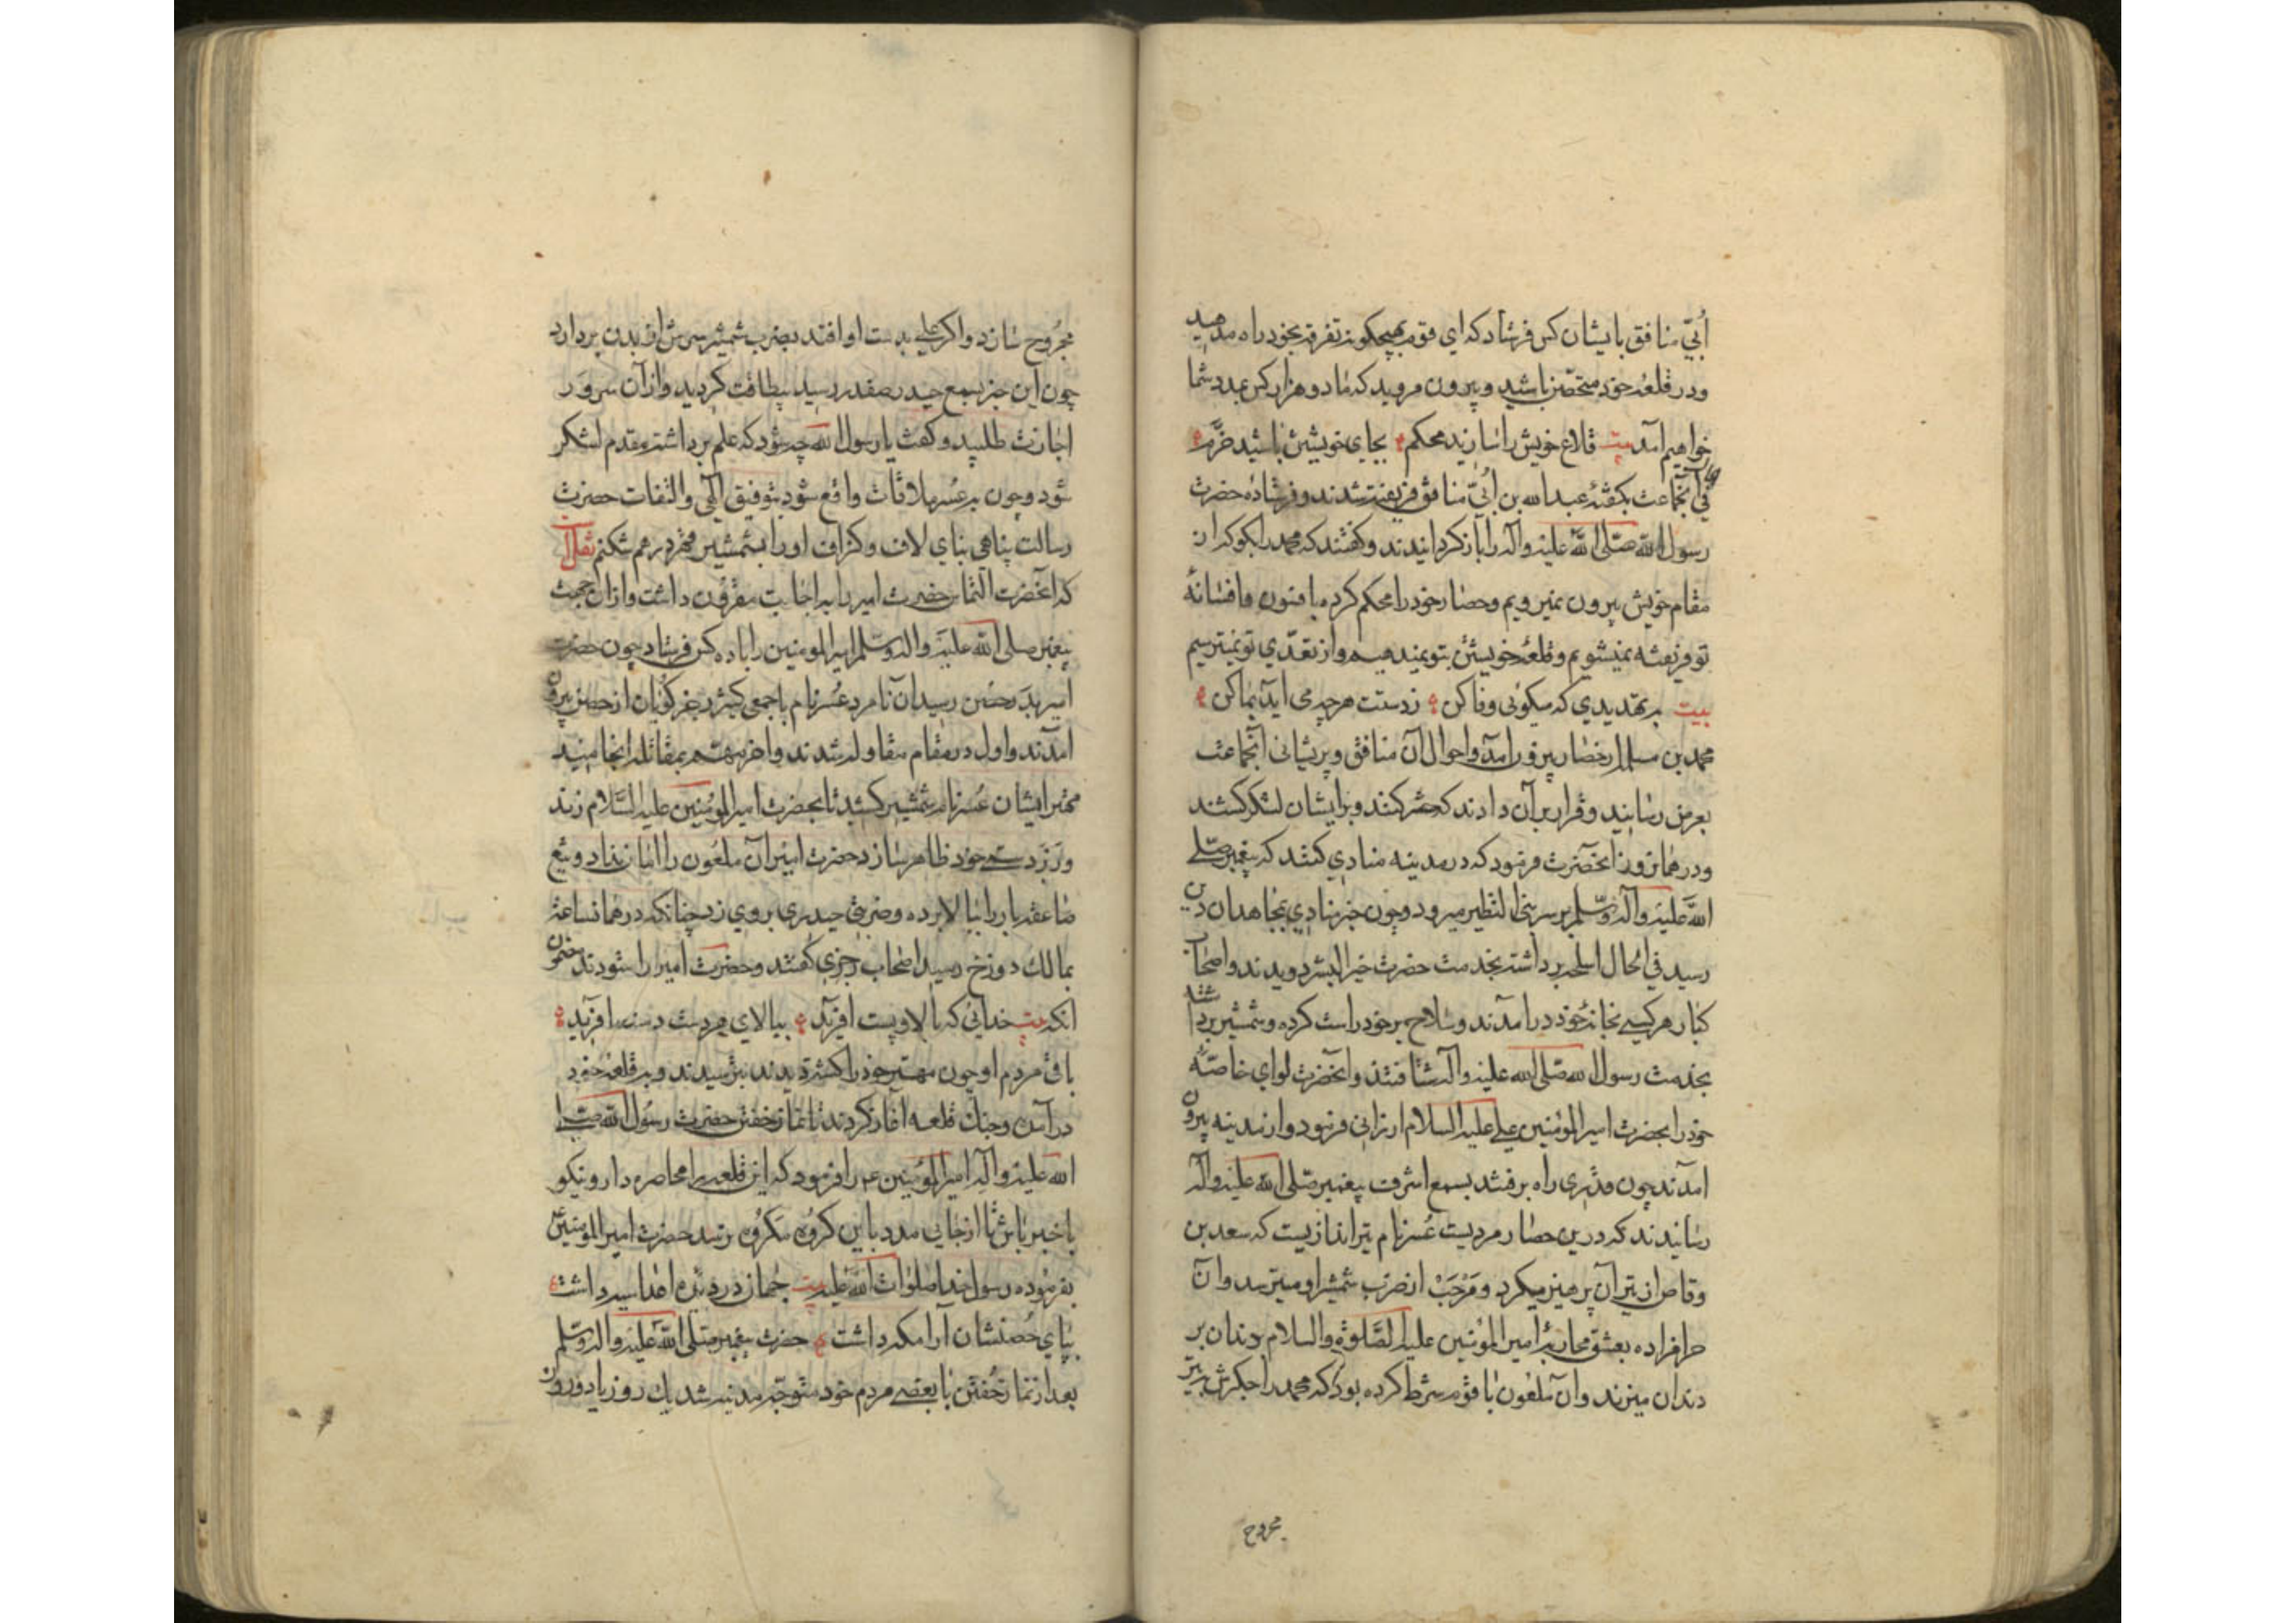 اُبیّ منافق بایشان کس فرستاد که ای قوم بهیچکونه تفرقه بخود راه مدهید
ودر قلعهٔ خود متحصّن باشید و بیرون مروید که ما دو هزار کس بمدد شما
خواهیم آمد بیت قلاع خویش را سازید محکم بجای خویشتن باشید خرّم
آنجماعت بکفتهٔ عبدالله بن اُبیّ منافق فریفته شدند و فرستادهٔ حضرت
رسول الله صلّی الله علیه وآله را باز کردانیدند و کفتند که محمد را بکو که از
مقام خویش بیرون نمیرویم و حصار خود را محکم کرده بافسون و افسانهٔ
تو فریفته نمیشویم و قلعهٔ خویشتن بتو نمیدهیم و از تعدّی تو نمیترسیم
بیت بر تهدیدی که میکوئی وفا کن ز دستت هرچه می آید بما کن
محمد بن مسلمه از حصار بیرون آمد و احوال آن منافق و پریشانی آنجماعت
بعرض رسانید و قرار بر آن دادند که حشر کنند و بر ایشان لشکر کشند
ودر همان روز آنحضرت فرمود که در مدینه منادی کنند که پیغمبر صلّی
الله علیه وآله وسلّم بر سر بنی النظیر میرود و چون خبر منادی بمجاهدان دین
رسید فی الحال اسلحه برداشته بخدمت حضرت خیر البشر دویدند و اصحاب
کبار هر کسی بخانهٔ خود در آمدند و سلاح بر خود راست کرده و شمشیر برداشته
بخدمت رسول الله صلی الله علیه وآله شتافتند و آنحضرت لوای خاصهٔ
خود را بحضرت امیرالمؤمنین علی علیه السلام ارزانی فرمود و از مدینه بیرون
آمدند چون قدری راه برفتند بسمع اشرف پیغمبر صلی الله علیه وآله
رسانیدند که درین حصار مردیست عُسر نام تیراندازیست که سعد بن
وقاص از تیر آن پرهیز میکرد و مَرْحَبْ از ضرب شمشیر او میترسد و آن
حرامزاده بعشق محاربهٔ امیرالمؤمنین علیه الصّلوة والسلام دندان بر
دندان میزند و آن ملعون با قوم شرط کرده بود که محمد را جکرش بتیر
مجروح
مجرُوح سازد و اکر علی بدست او افتد بضرب شمشیر سرش از بدن بردارد
چون این خبر بسمع حیدر صفدر رسید بیطاقت کردید و از آن سرور
اجازت طلبید و کفت یا رسول الله چه شود که علم برداشته مقدم لشکر
شود و چون بر عُسر ملاقات واقع شود بتوفیق الهی و التفات حضرت
رسالت پناهی بنای لاف و کزاف او را بشمشیر در هم شکنم نقل
که آنحضرت التماس حضرت امیر را باجابت مقرون داشت و از آن جهت
پیغمبر صلی الله علیه واله وسلم امیرالمومنین را با ده کس فرستاد چون حضرت
امیر بدَر حصْن رسید آن نامرد عُسر نام با جمعی کثیر رجز کویان از حصن بیرون
آمدند و اول در مقام مقاوله شدند و آخر مهم بمقاتله انجامید
مهتر ایشان عُسر نام شمشیر کشید تا بحضرت امیرالمؤمنین علیه السّلام زند
و زبردستی خود ظاهر سازد حضرت امیر آن ملعون را امان نداد و تیغ
صاعقه بار را ببالا برده و ضربتی حیدری بر وی زد چنانکه در همان ساعت
بمالک دوزخ رسید اصحاب رجزی کفتند و حضرت امیر را ستودند مضمون
آنکه بیت خدائی که بالا و پست آفرید ببالای هر دست دست آفرید
باقی مردم او چون مهتر خود را کشته دیدند بترسیدند و بر قلعهٔ خود
در آمدند وجنک قلعه آغاز کردند تا نماز خفتن حضرت رسُول الله صلی
الله علیه وآله امیرالمؤمنین ع را فرمود که این قلعه را محاصره دار و نیکو
با خبر باش تا از جایی مدد باین کروه مکروه نرسد حضرت امیرالمومنین
بفرموده رسول خدا صلوات الله علیه بیت جهان در دیدهٔ اعدا سیه داشت
بپای حُصنشان آرامکه داشت حضرت پیغمبر صلی الله علیه واله وسلم
بعد از نماز خُفتن با بعضی مردم خود متوجه مدینه شد یک روز یا دو روز